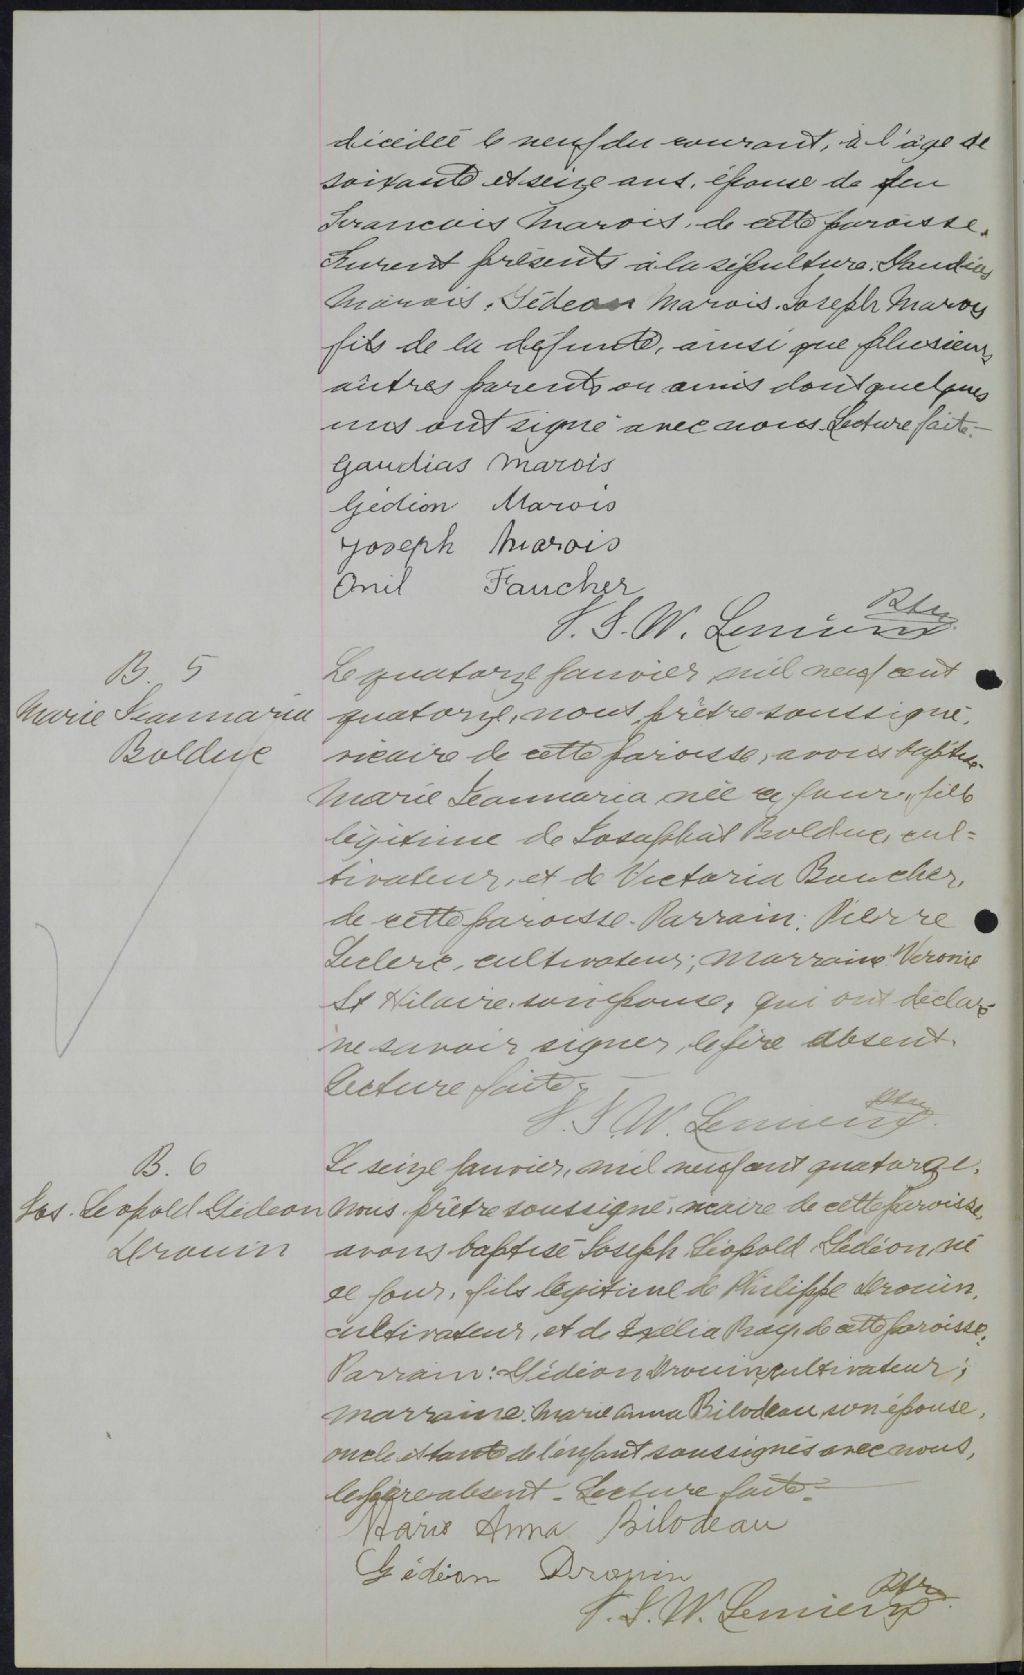 décédée le neuf du courant, à l'âge de
soixante et seize ans, épouse de feu
Francois Marois, de cette paroisse.
Furent présents à la sépulture: Gaudias
Marois, Gédeon Marois, Joseph Marois
fils de la défunte, ainsi que plusieurs
autres parents ou amis dont quelques
uns ont signé avec nous. Lecture faite.-
Gaudias Marois
Gédion Marois
Joseph Marois
Onil Faucher
J. W. Lemieux Ptre
B. 5
Marie Jeannaria
Bolduc
Le quatorze janvier, mil neuf cent
quatorze, nous, prêtre soussigné,
vicaire de cette paroisse, avons baptisé
Marie Jeannaria née ce jour, fille
légitime de Josaphat Bolduc, cul=
tivateur, et de Victoria Boucher,
de cette paroisse. Parrain: Pierre
Leclerc, cultivateur; Marraine Veronie
St Hilaire, son épouse, qui ont déclaré
ne savoir signer, le père absent.
Lecture faite.
J. W. Lemieux Ptre
B. 6
Jos. Leopold Gédeon
Drouin
Le seize janvier, mil neuf cent quatorze,
nous prêtre soussigné, vicaire de cette paroisse,
avons baptisé Joseph Léopold Gédéon, né
ce jour, fils légitime de Philippe Drouin,
cultivateur, et de Exélia Roy, de cette paroisse.
Parrain: Gédéon Drouin, cultivateur;
marraine: Marie Anna Bilodeau, son épouse,
oncle et tante de l'enfant soussignés avec nous,
le père absent. Lecture faite.
Marie Anna Bilodeau
Gédéon Drouin
J. W. Lemieux Ptre